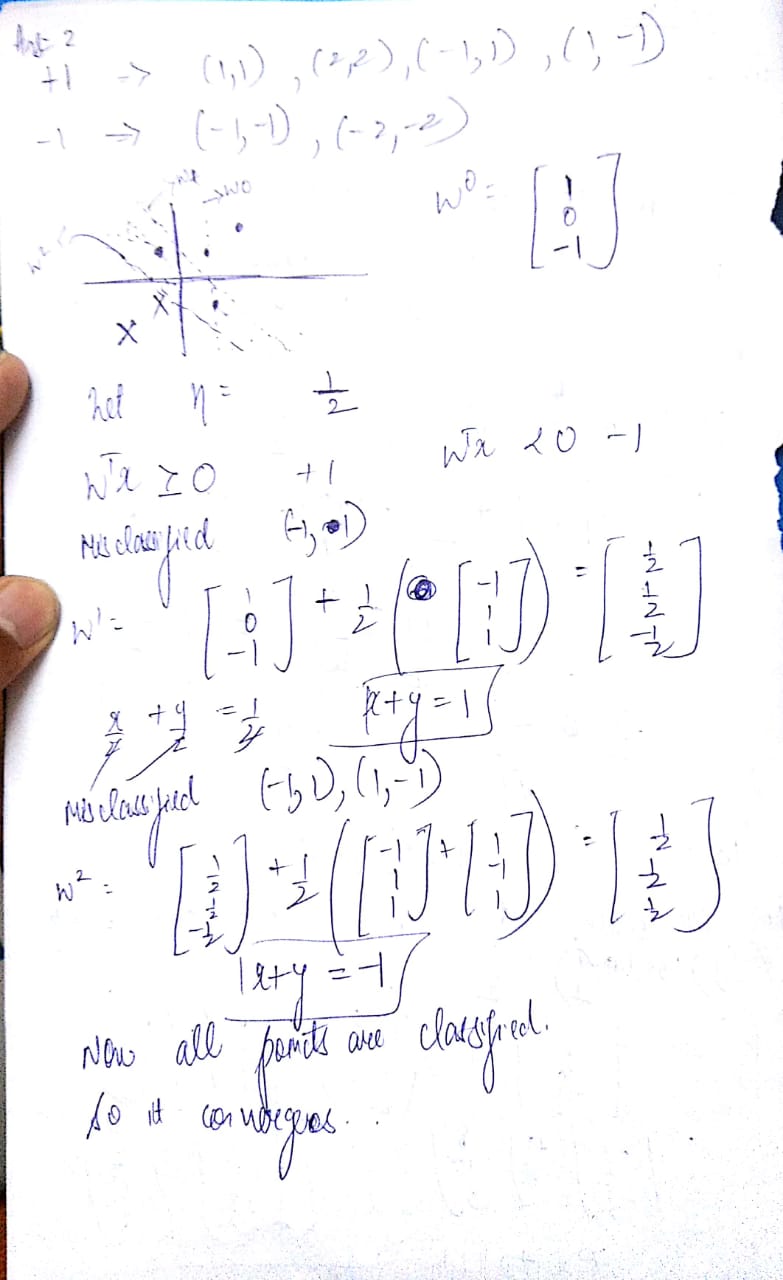 Ans 2
+1 -> (1,1), (2,2), (-1,1), (1,-1)
-1 => (-1,-1), (-2,-2)
w⁰ = [1 0 -1]
w0
w2
let η = 1/2
wᵀx ≥ 0 +1 wᵀx < 0 -1
Misclassified (-1, 1)
w¹ = [1 0 -1] + 1/2 ([-1 1 1]) = [1/2 1/2 -1/2]
x/2 + y/2 = 1/2 x+y=1
Misclassified (-1,1), (1,-1)
w² = [1/2 1/2 -1/2] + 1/2 ([-1 1 1] + [1 -1 1]) = [1/2 1/2 1/2]
x+y = -1
Now all points are classified.
So it converges..